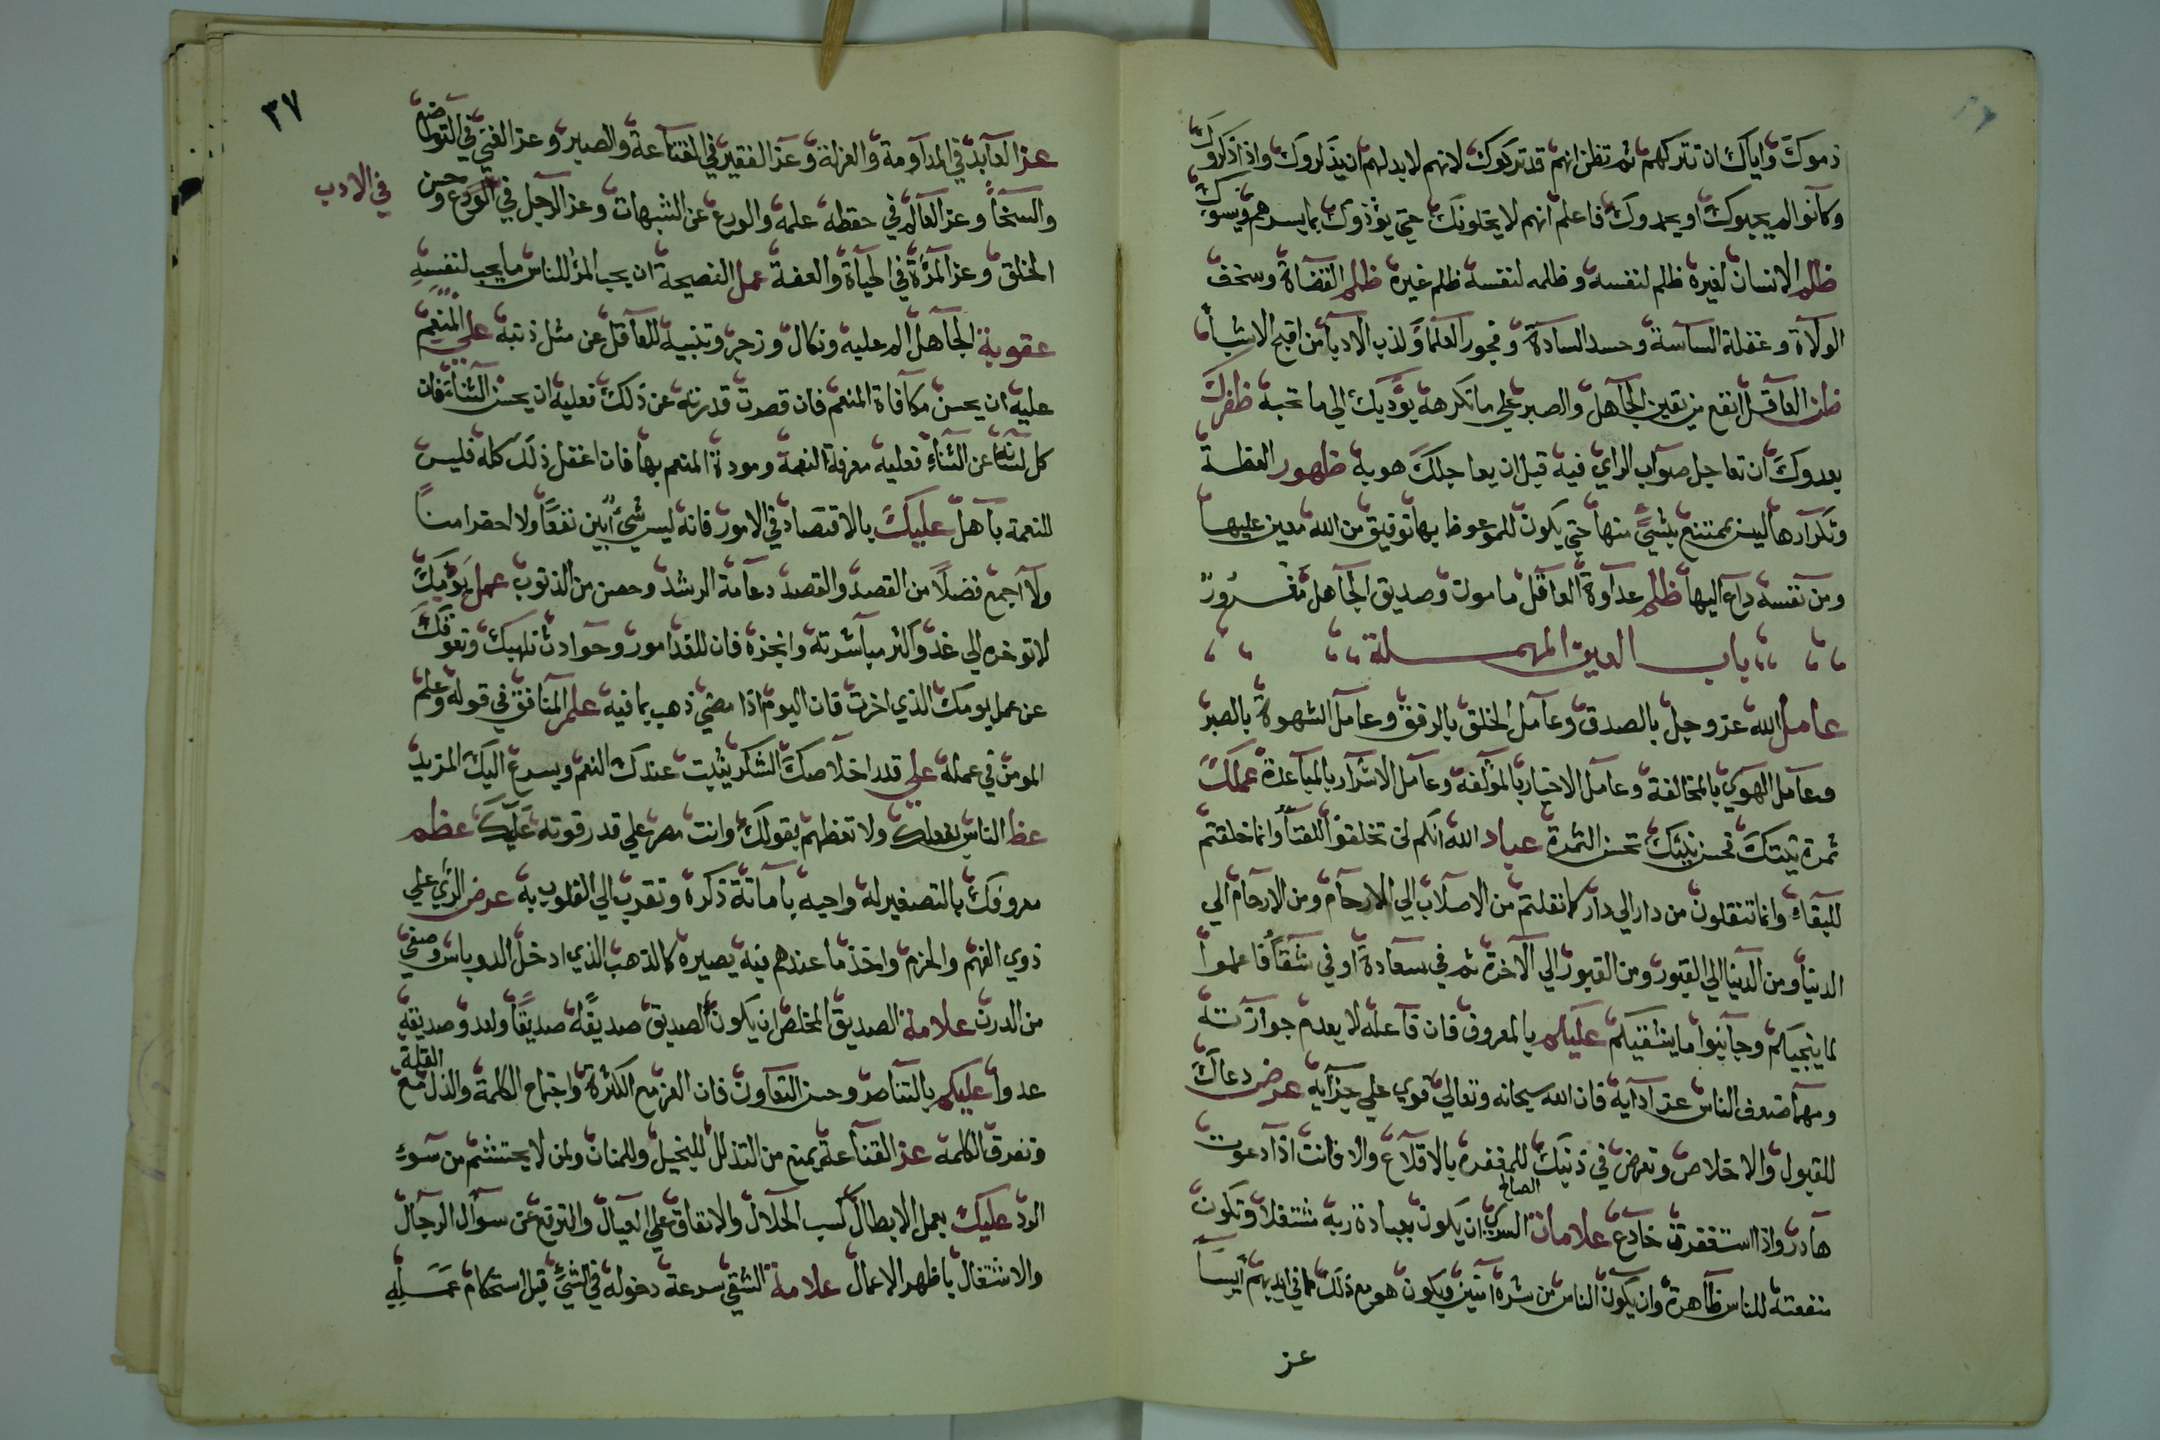 ذموك واياك ان تتركهم ثم تظن انهم قد تركوك لانهم لا بد لهم ان يذكروك واذا ذكروك
وكانوا لم يحبوك او يحمدوك فاعلم انهم لا يخلونك حتي يؤذوك بما يسرهم ويسؤك
ظلم الانسان لغيره ظلم لنفسه وظلمه لنفسه ظلم غيره ظلم القضاة وسخف
الولاة وغفلة الساسة وحسد السادة وفجور العلما وكذب الادبا من اقبح الاشيا
ظن العاقل انفع من يقين الجاهل والصبر علي ما تكرهه يؤديك الي ما تحبه ظفرك
بعدوك ان تعاجل صواب الراي فيه قبل ان يعاجلك هو به ظهور العظة
وتكرارها ليس بمنتفع بشيئ منها حتي يكون للموعوظ بها توفيق من الله معين عليها
ومن نفسه داع اليها ظلم عداوة العاقل مامون وصديق الجاهل مغرور
باب العين المهملة
عامل الله عز وجل بالصدق وعامل الخلق بالرفق وعامل الشهوة بالصبر
وعامل الهوي بالمخالفة وعامل الاخيار بالمؤلفه وعامل الاشرار بالمباعدة عملك
ثمرة نيتك فحسن نيتك تحسن الثمرة عباد الله انكم لن تخلقوا للفنا وانما خلقتم
للبقاء وانما تنتقلون من دار الي دار كما نقلتم من الاصلاب الي الارحام ومن الارحام الي
الدنيا ومن الدنيا الي القبور ومن القبور الي الاخرة ثم في سعادة او في شقا فاعملوا
لما ينجيكم وجانبوا ما يشقيكم عليكم بالمعروف فان فاعله لا يعدم جوازته
ومهما ضعف الناس عن ادايه فان الله سبحانه وتعالي قوي علي جزايه عرض دعاك
للقبول والاخلاص وتعرض في ذنبك للمغفرة بالاقلاع والا فانت اذا دعوت
هادر واذا استغفرت خادع علامات السري الصالح ان يكون بعبادة ربه مشتغلا وتكون
منفعته للناس ظاهرة وان يكون الناس من شره آمنين ويكون هو مع ذلك مما في ايديهم آيسا
عز
٣٧
عز العابد في المداومة والعزلة وعز الفقير في القناعة والصبر وعز الغني في التواضع
في الادب
والسخا وعز العالم في حفظه علمه والورع عن الشبهات وعز الرجل في الورع وحسن
الخلق وعز المرؤة في الحياة والعفة عمل النصيحة ان يحب المرؤ للناس ما يحب لنفسه
عقوبة الجاهل الم عليه ونكال وزجر وتنبيه للعاقل عن مثل ذنبه علي المنعم
عليه ان يحسن مكافاة المنعم فان قصرت قدرته عن ذلك فعليه ان يحسن الثنا فان
كل لسانه عن الثناء فعليه معرفة النعمة ومودة المنعم بها فان اغفل ذلك كله فليس
للنعمة باهل عليك بالاقتصاد في الامور فانه ليس شيئ ابين نفعا ولا احضر امنا
ولا اجمع فضلا من القصد والقصد دعامة الرشد وحصن من الذنوب عمل يومك
لا تؤخره الي غد واكثر مباشرته وانجزه فان للغد امور وحوادث تلهيك وتعوقك
عن عمل يومك الذي اخرت فان اليوم اذا مضي ذهب بما فيه علم المنافق في قوله وعلم
المومن في عمله علي قدر اخلاصك الشكر يثبت عندك النعم ويسرع اليك المزيد
عظ الناس بفعلك ولا تعظهم بقولك وانت مصر علي قدر قوته عليك عظم
معروفك بالتصغير له واحيه باماتة ذكره وتقرب الي القلوب به عرض الراي علي
ذوي الفهم والحزم واخذ ما عندهم فيه يصيره كالذهب الذي ادخل الدوباس وصفي
من الدرن علامة الصديق المخلص ان يكون الصديق صديقه صديقا ولعدو صديقه
عدوا عليكم بالتناصر وحسن التعاون فان العز مع الكثرة واجتماع الكلمة والذل مع القلة
وتفرق الكلمة عز القناعة يمنع من التذلل للبخيل وللمنان ولمن لا يحتشم من سوء
الرد عليك بعمل الابطال كسب الحلال والانفاق علي العيال والترفع عن سوال الرجال
والاشتغال باظهر الاعمال علامة الشقي سرعة دخوله في الشيئ قبل استحكام عمله